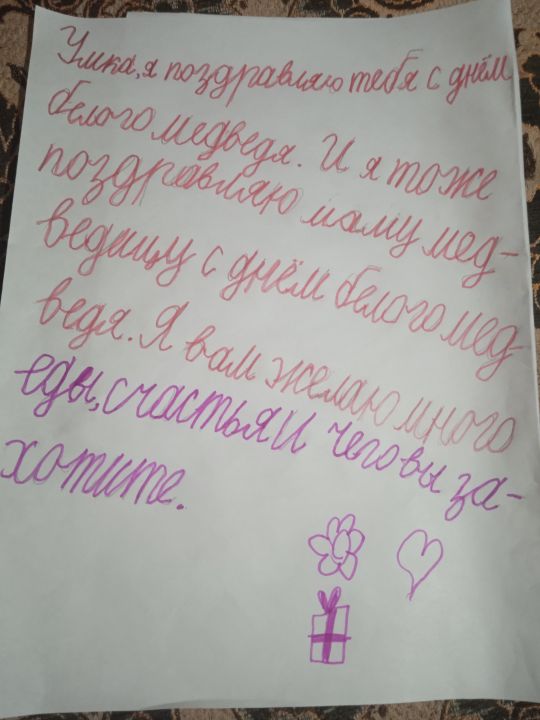 Умка, я поздравляю тебя с днём
белого медведя. И я тоже
поздравляю маму мед-
ведицу с днём белого мед-
ведя. Я вам желаю много
еды, счастья и чего вы за-
хотите.